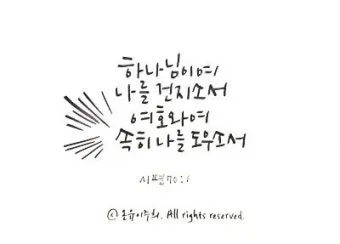 하나님이여
나를 건지소서
여호와여
속히 나를 도우소서
시편 70:1
ⓒ 온유이주희. All rights reserved.